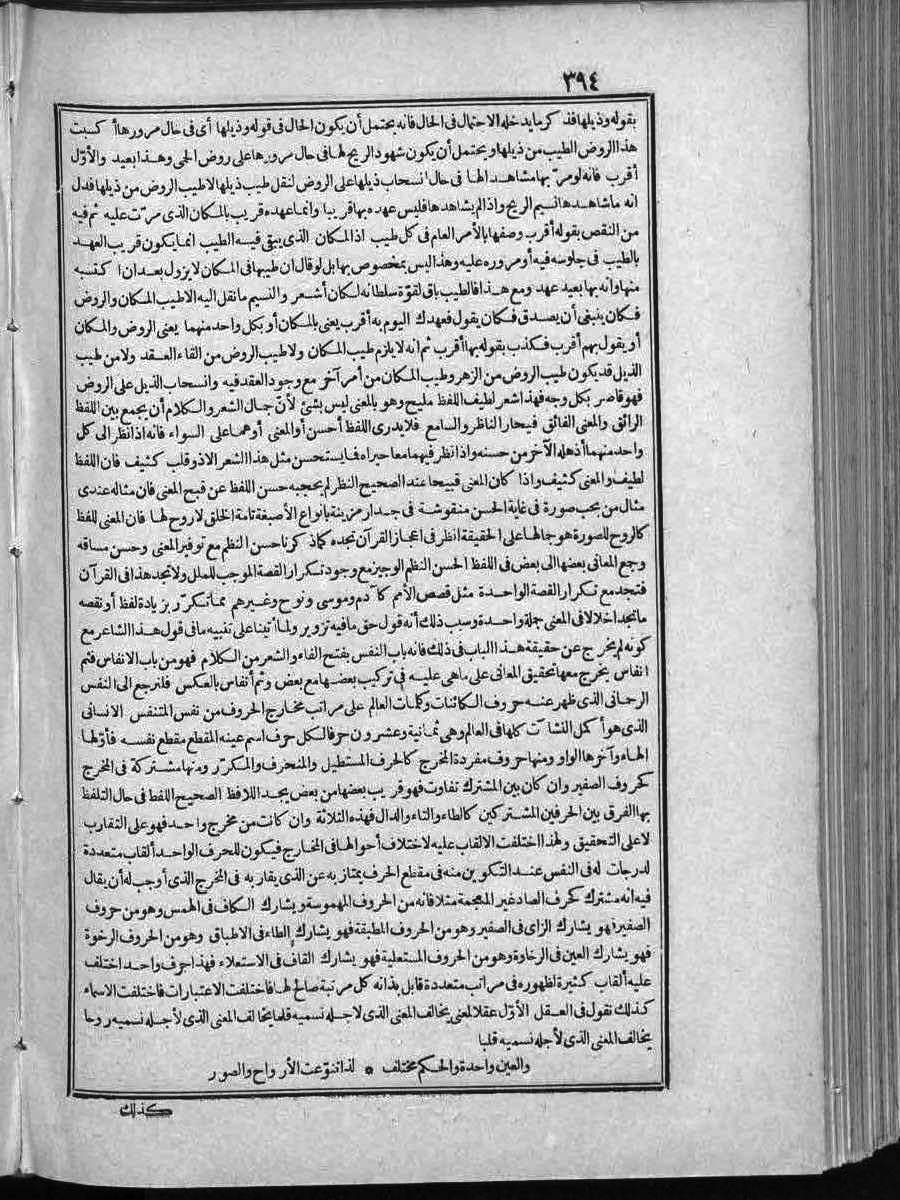 ٣٩٤
بقوله وذيلها فذكر ما يدخله الاحتمال فى الحال فانه يحتمل أن يكون الحال فى قوله وذيلها أى فى حال مرورها أكسبت
هذا الروض الطيب من ذيلها ويحتمل أن يكون شهود الريح لها فى حال مرورها على روض الحمى وهذا بعيد والاوّل
أقرب فانه لو مرّ بها مشاهدا لها فى حال انسحاب ذيلها على الروض لنقل طيب ذيلها لا طيب الروض من ذيلها فدل
انه ما شاهدها نسيم الريح واذا لم يشاهدها فليس عهده بها قريبا وانما عهده قريب بالمكان الذى مرّت عليه ثم فيه
من النقص بقوله أقرب وصفها بالأمر العام فى كل طيب اذ المكان الذى يبقى فيسه الطيب انما يكون قريب العهد
بالطيب فى جلوسه فيه أو مروره عليه وهذا ليس بمخصوص بها بل لو قال ان طيبها فى المكان لا يزول بعد ان اكتسبه
منها وانه بها بعيد عهد ومع هذا فالطيب باق لقوّة سلطانه لكان أشعر والنسيم ما نقل اليه الا طيب المكان والروض
فكان ينبغى أن يصدق فكان يقول فعهدك اليوم به أقرب يعنى بالمكان أو بكل واحد منهما يعنى الروض والمكان
أو يقول بهم أقرب فكذب بقوله بها أقرب ثم انه لا يلزم طيب المكان ولا طيب الروض من القاء العقد ولا من طيب
الذيل قد يكون طيب الروض من الزهر وطيب المكان من أمر آخر مع وجود العقد فيه وانسحاب الذيل على الروض
فهو قاصر بكل وجه فهذا شعر لطيف اللفظ مليح وهو بالمعنى ليس بشئ لأنّ جمال الشعر والكلام أن يجمع بين اللفظ
الرائق والمعنى الفائق فيحار الناظر والسامع فلا يدرى اللفظ أحسن أو المعنى أو هما على السواء فانه اذا نظر الى كل
واحد منهما أذهله الآخر من حسنه واذا نظر فيهما معا حيراه فما يستحسن مثل هذا الشعر الا ذو قلب كثيف فان اللفظ
لطيف والمعنى كثيف واذا كان المعنى قبيحا عند الصحيح النظر لم يحجبه حسن اللفظ عن قبح المعنى فان مثاله عندى
مثال من يحب صورة فى غاية الحسن منقوشة فى جدار مزينة بانواع الأصبغة تامة الخلق لا روح لها فان المعنى للفظ
كالروح للصورة هو جمالها على الحقيقة انظر فى اعجاز القرآن تجده كما ذكرنا حسن النظم مع توفير المعنى وحسن مساقه
وجمع المعانى بعضها الى بعض فى اللفظ الحسن النظم الوجيز مع وجود تكرار القصة الموجب للملل ولا تجد هذا فى القرآن
فتجد مع تكرار القصة الواحدة مثل قصص الأمم كآدم وموسى ونوح وغيرهم مما تكرّر بزيادة لفظ أو نقصه
ما تجد اخلالا فى المعنى جملة واحدة وسبب ذلك أنه قول حق ما فيه تزوير ولما أتينا على تنبيه ما فى قول هذا الشاعر مع
كونه لم يخرج عن حقيقة هذا الباب فى ذلك فانه باب النفس بفتح الفاء والشعر من الكلام فهو من باب الانفاس فثم
انفاس يخرج معها تحقيق المعانى على ما هى عليه فى تركيب بعضها مع بعض وثم أنفاس بالعكس فلنرجع الى النفس
الرحمانى الذى ظهر عنه حروف الكائنات وكلمات العالم على مراتب مخارج الحروف من نفس المتنفس الانسانى
الذى هو أكمل النشآت كلها فى العالم وهى ثمانية وعشرون حرفا لكل حرف اسم عينه المقطع مقطع نفسه فأوّلها
الهاء وآخرها الواو ومنها حروف مفردة المخرج كالحرف المستطيل والمنحرف والمكرّر ومنها مشتركة فى المخرج
كحروف الصفير وان كان بين المشترك تفاوت فهو قريب بعضها من بعض يجد اللافظ الصحيح اللفظ فى حال التلفظ
بها الفرق بين الحرفين المشتركين كالطاء والتاء والدال فهذه الثلاثة وان كانت من مخرج واحد فهو على التقارب
لا على التحقيق ولهذا اختلفت الالقاب عليه لاختلاف أحوالها فى المخارج فيكون للحرف الواحد ألقاب متعددة
لدرجات له فى النفس عند التكوين منه فى مقطع الحرف يمتاز به عن الذى يقاربه فى المخرج الذى أوجب له أن يقال
فيه انه مشترك كحرف الصاد غير المعجمة مثلا فانه من الحروف المهموسة ويشارك الكاف فى الهمس وهو من حروف
الصفير فهو يشارك الزاى فى الصفير وهو من الحروف المطبقة فهو يشارك الطاء فى الاطباق وهو من الحروف الرخوة
فهو يشارك العين فى الرخاوة وهو من الحروف المستعلية فهو يشارك القاف فى الاستعلاء فهذا حرف واحد اختلف
عليه ألقاب كثيرة لظهوره فى مراتب متعددة قابل بذاته كل مرتبة صالح لها فاختلفت الاعتبارات فاختلفت الاسماء
كذلك نقول فى العقل الأوّل عقلا لمعنى يخالف المعنى الذى لاجله نسميه قلما يخالف المعنى الذى لأجله نسميه روحا
يخالف المعنى الذى لأجله نسميه قلبا
والعين واحدة والحكم مختلف * لذا تنوّعت الأرواح والصور
كذلك